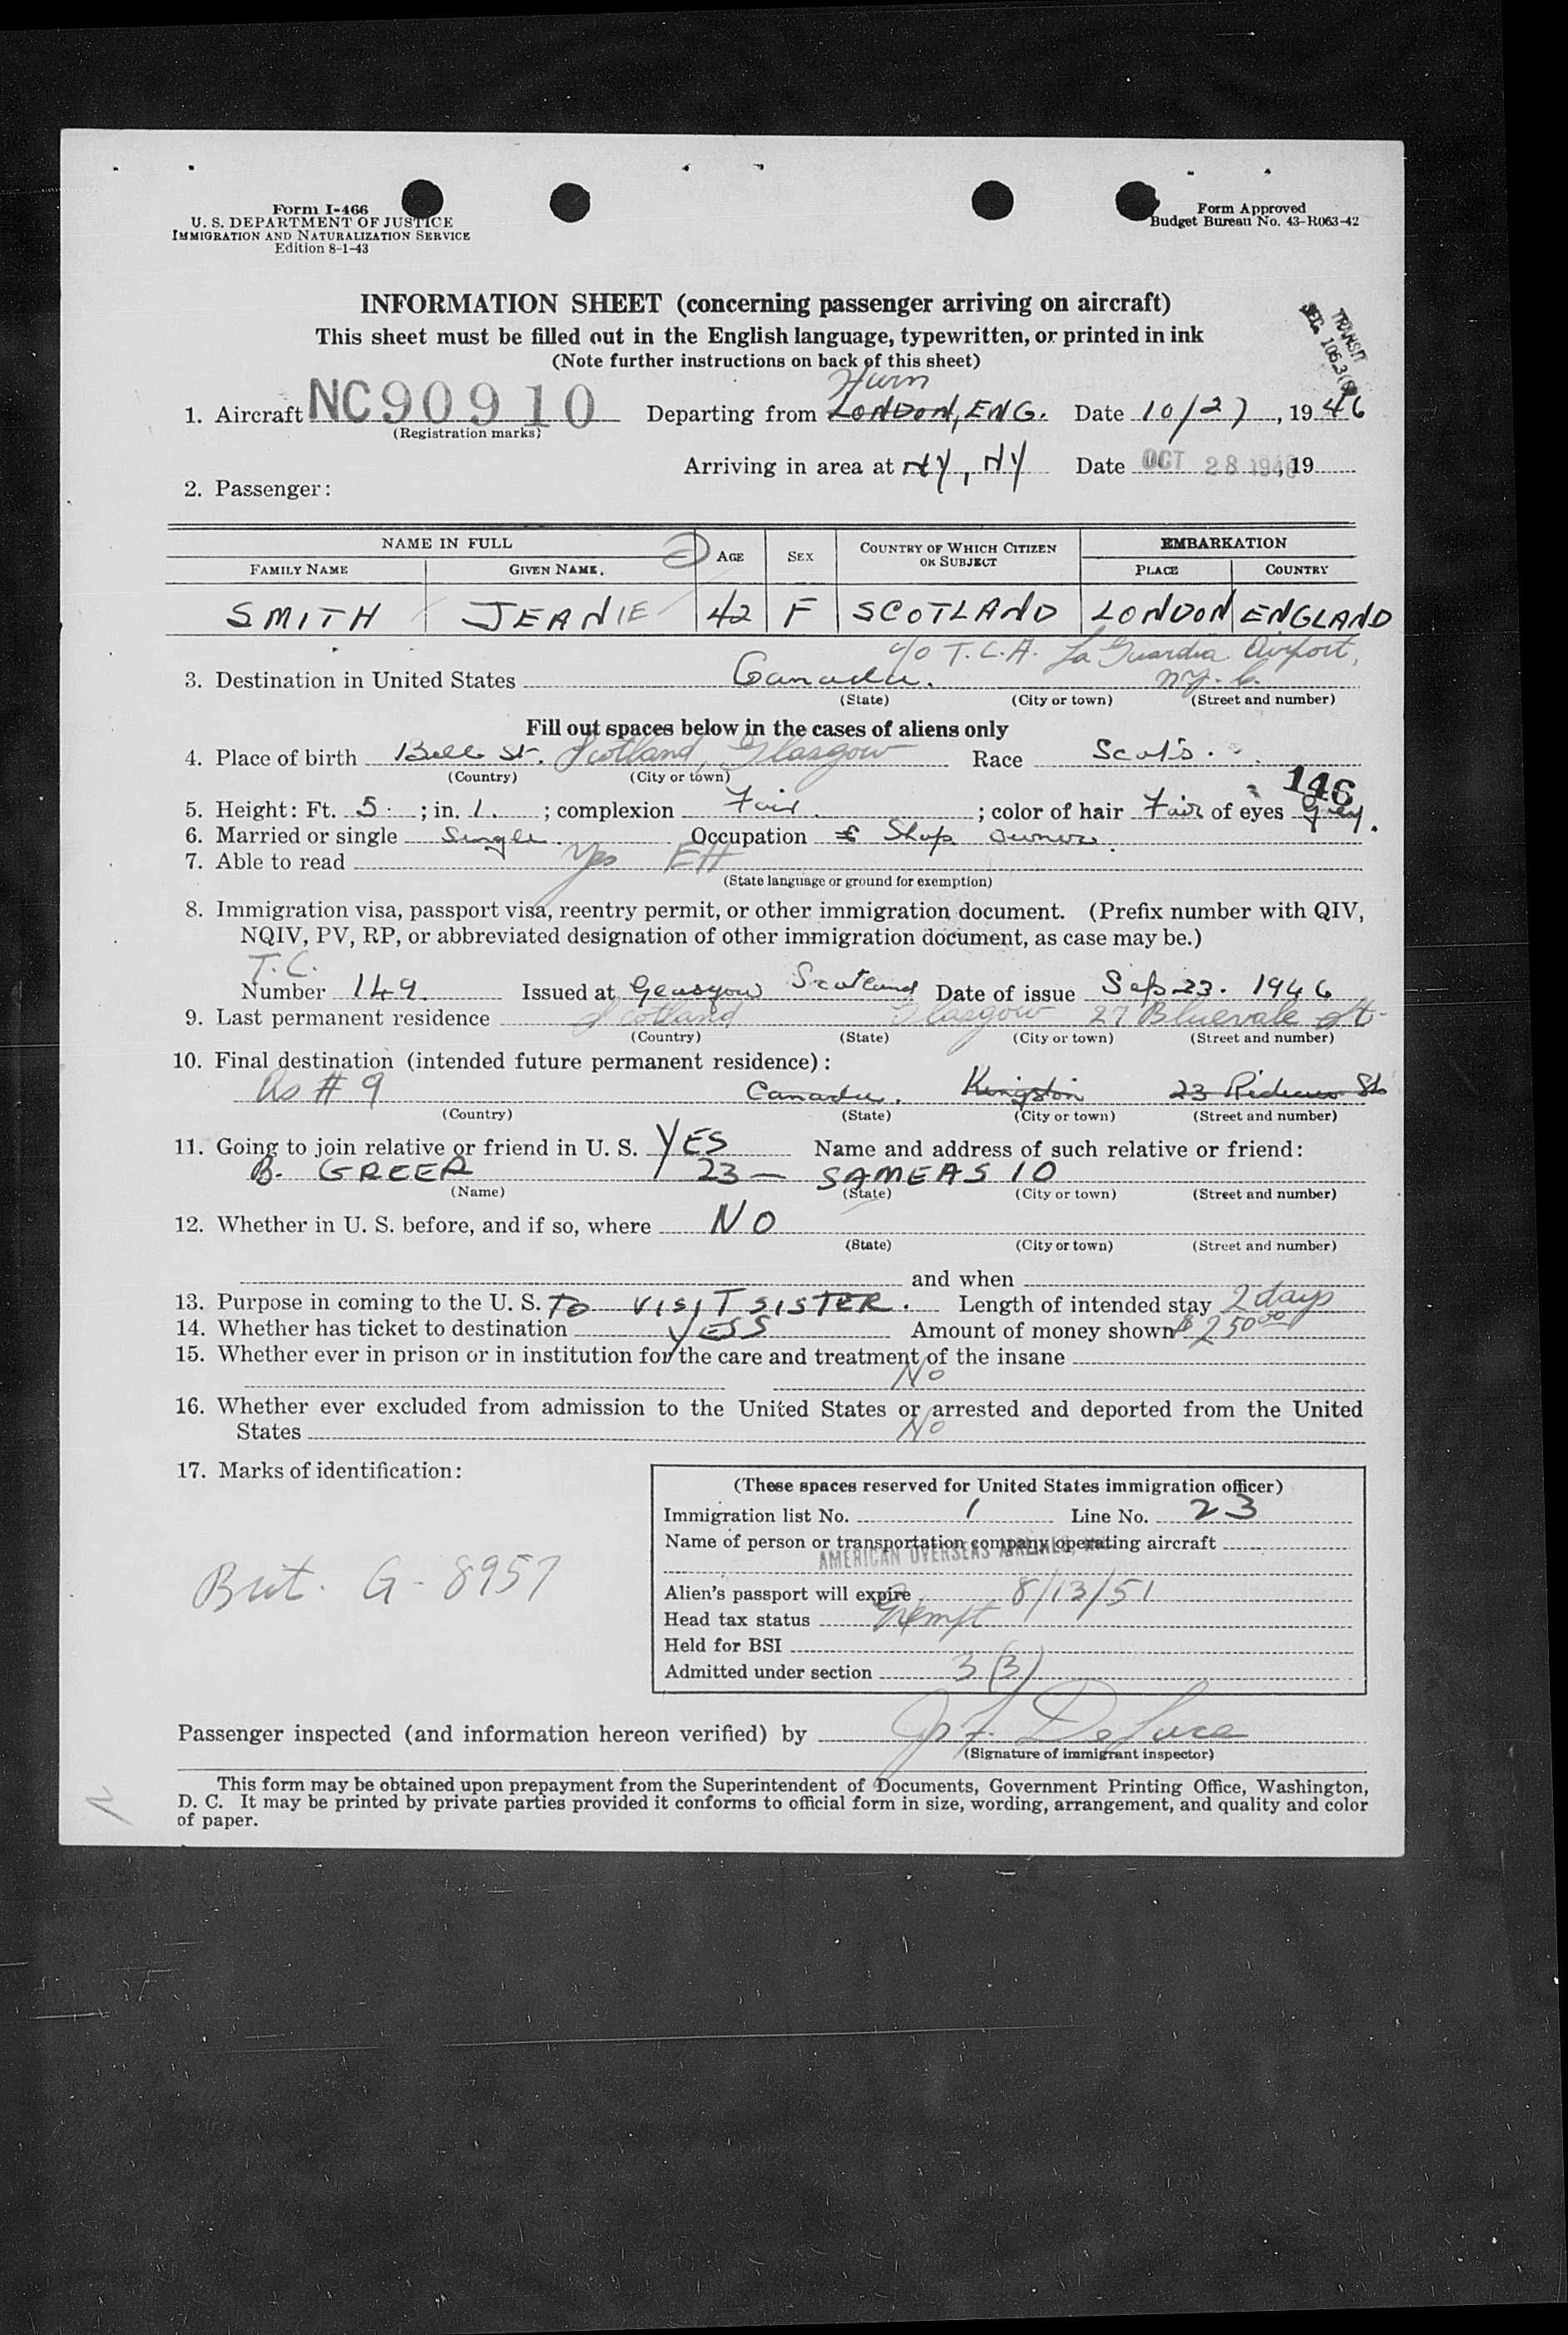 Form I-466
U. S. DEPARTMENT OF JUSTICE
IMMIGRATION AND NATURALIZATION SERVICE
Edition 8-1-43
Form Approved
Budget Bureau No. 43-R063-42
INFORMATION SHEET (concerning passenger arriving on aircraft)
This sheet must be filled out in the English language, typewritten, or printed in ink
(Note further instructions on back of this sheet)
TRANSIT
Hurn
1. Aircraft NC90910 Departing from LONDON, ENG. Date 10/27, 1946
(Registration marks)
Arriving in area at NY, NY Date OCT 28 1946, 19
2. Passenger:
NAME IN FULL AGE SEX COUNTRY OF WHICH CITIZEN OR SUBJECT EMBARKATION
FAMILY NAME GIVEN NAME. PLACE COUNTRY
SMITH JEANIE 42 F SCOTLAND LONDON ENGLAND
c/o T.C.A. La Guardia Airport,
3. Destination in United States Canada. N.Y.C.
(State) (City or town) (Street and number)
Fill out spaces below in the cases of aliens only
4. Place of birth Bell St. Scotland, Glasgow Race Scots.
(Country) (City or town)
146
5. Height: Ft. 5 ; in. 1. ; complexion Fair. ; color of hair Fair of eyes Grey.
6. Married or single Single. Occupation Shop owner.
7. Able to read Yes EH
(State language or ground for exemption)
8. Immigration visa, passport visa, reentry permit, or other immigration document. (Prefix number with QIV,
NQIV, PV, RP, or abbreviated designation of other immigration document, as case may be.)
T.C.
Number 149. Issued at Glasgow Scotland Date of issue Sep 23. 1946
9. Last permanent residence Scotland Glasgow 27 Bluevale St.
(Country) (State) (City or town) (Street and number)
10. Final destination (intended future permanent residence):
As # 9 Canada. Kingston 23 Rideau St
(Country) (State) (City or town) (Street and number)
11. Going to join relative or friend in U. S. YES Name and address of such relative or friend:
B. GREER 23 — SAME AS 10
(Name) (State) (City or town) (Street and number)
12. Whether in U. S. before, and if so, where NO
(State) (City or town) (Street and number)
and when
13. Purpose in coming to the U. S. TO VISIT SISTER. Length of intended stay 2 days
14. Whether has ticket to destination YESS Amount of money shown $250 00
15. Whether ever in prison or in institution for the care and treatment of the insane
No
16. Whether ever excluded from admission to the United States or arrested and deported from the United
States No
17. Marks of identification:
(These spaces reserved for United States immigration officer)
Immigration list No. 1 Line No. 23
Name of person or transportation company operating aircraft
AMERICAN OVERSEAS AIRLINES, INC.
Brit. G-8957
Alien's passport will expire 8/13/51
Head tax status Exempt
Held for BSI
Admitted under section 3(3)
Passenger inspected (and information hereon verified) by De Luca
(Signature of immigrant inspector)
This form may be obtained upon prepayment from the Superintendent of Documents, Government Printing Office, Washington,
D. C. It may be printed by private parties provided it conforms to official form in size, wording, arrangement, and quality and color
of paper.